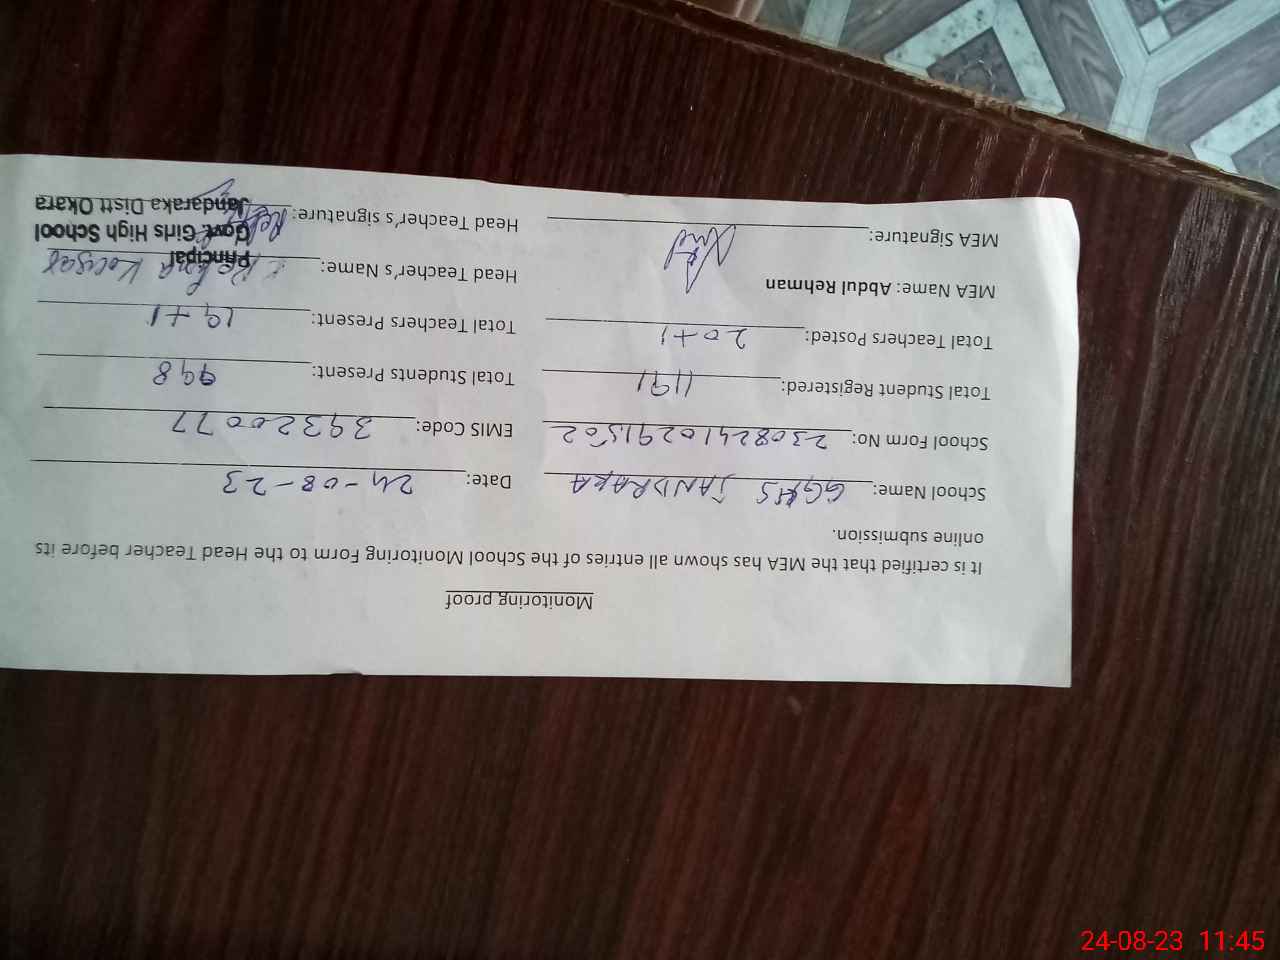 Monitoring proof
It is certified that the MEA has shown all entries of the School Monitoring Form to the Head Teacher before its
online submission.
School Name: GGHS JANDRAKA Date: 24-08-23
School Form No: 23082410291502 EMIS Code: 39320077
Total Student Registered: 1191 Total Students Present: 998
Total Teachers Posted: 20+1 Total Teachers Present: 19+1
MEA Name: Abdul Rehman Head Teacher's Name: Kousar
MEA Signature: Head Teacher's signature:
Principal
Govt. Girls High School
Jandaraka Distt Okara
24-08-23 11:45